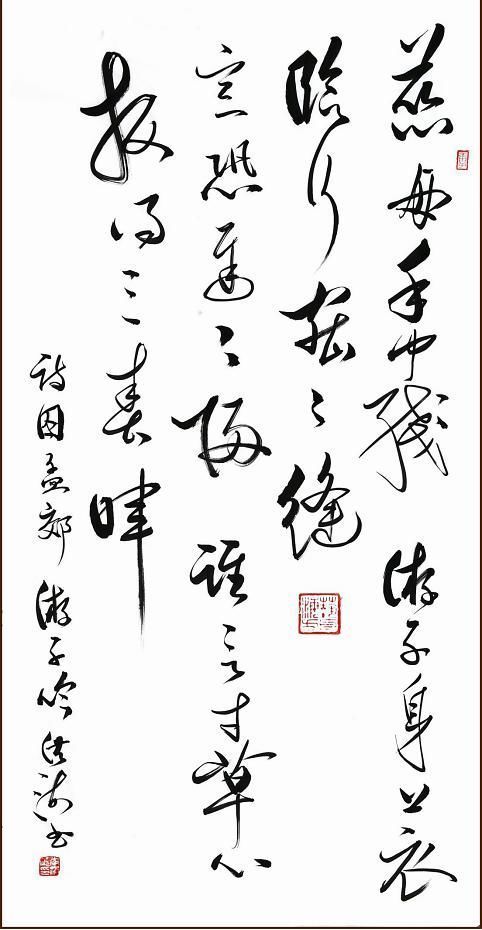 慈母手中线 游子身上衣
临行密〻缝
意恐迟〻归 谁言寸草心
报得三春晖
诗孟郊 游子吟 书